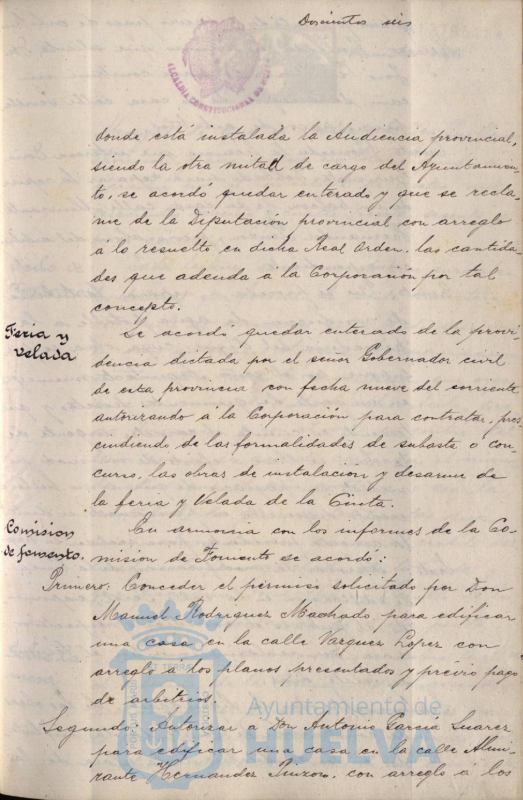 Doscientos seis
ALCALDIA CONSTITUCIONAL DE
donde está instalada la Audiencia provincial,
siendo la otra mitad de cargo del Ayuntamien-
to, se acordó quedar enterado y que se recla-
me de la Diputación provincial con arreglo
á lo resuelto en dicha Real Orden, las cantida-
des que adeuda á la Corporación por tal
concepto.
Feria y
velada
Se acordó quedar enterado de la provi-
dencia dictada por el señor Gobernador civil
de esta provincia con fecha nueve del corriente
autorizando á la Corporación para contratar, pres
cindiendo de las formalidades de subasta o con-
curso, las obras de instalación y desarme de
la feria y Velada de la Cinta.
Comision
de fomento.
En armonia con los informes de la Co-
mision de Fomento se acordó:
Primero: Conceder el permiso solicitado por Don
Manuel Rodriguez Machado para edificar
una casa en la calle Vazquez Lopez con
arreglo a los planos presentados y prévio pago
de arbitrios.
Segundo: Autorizar a Don Antonio Garcia Suarez
para edificar una casa en la calle Almi-
rante Hernandez Pinzon, con arreglo á los
Ayuntamiento de
HUELVA